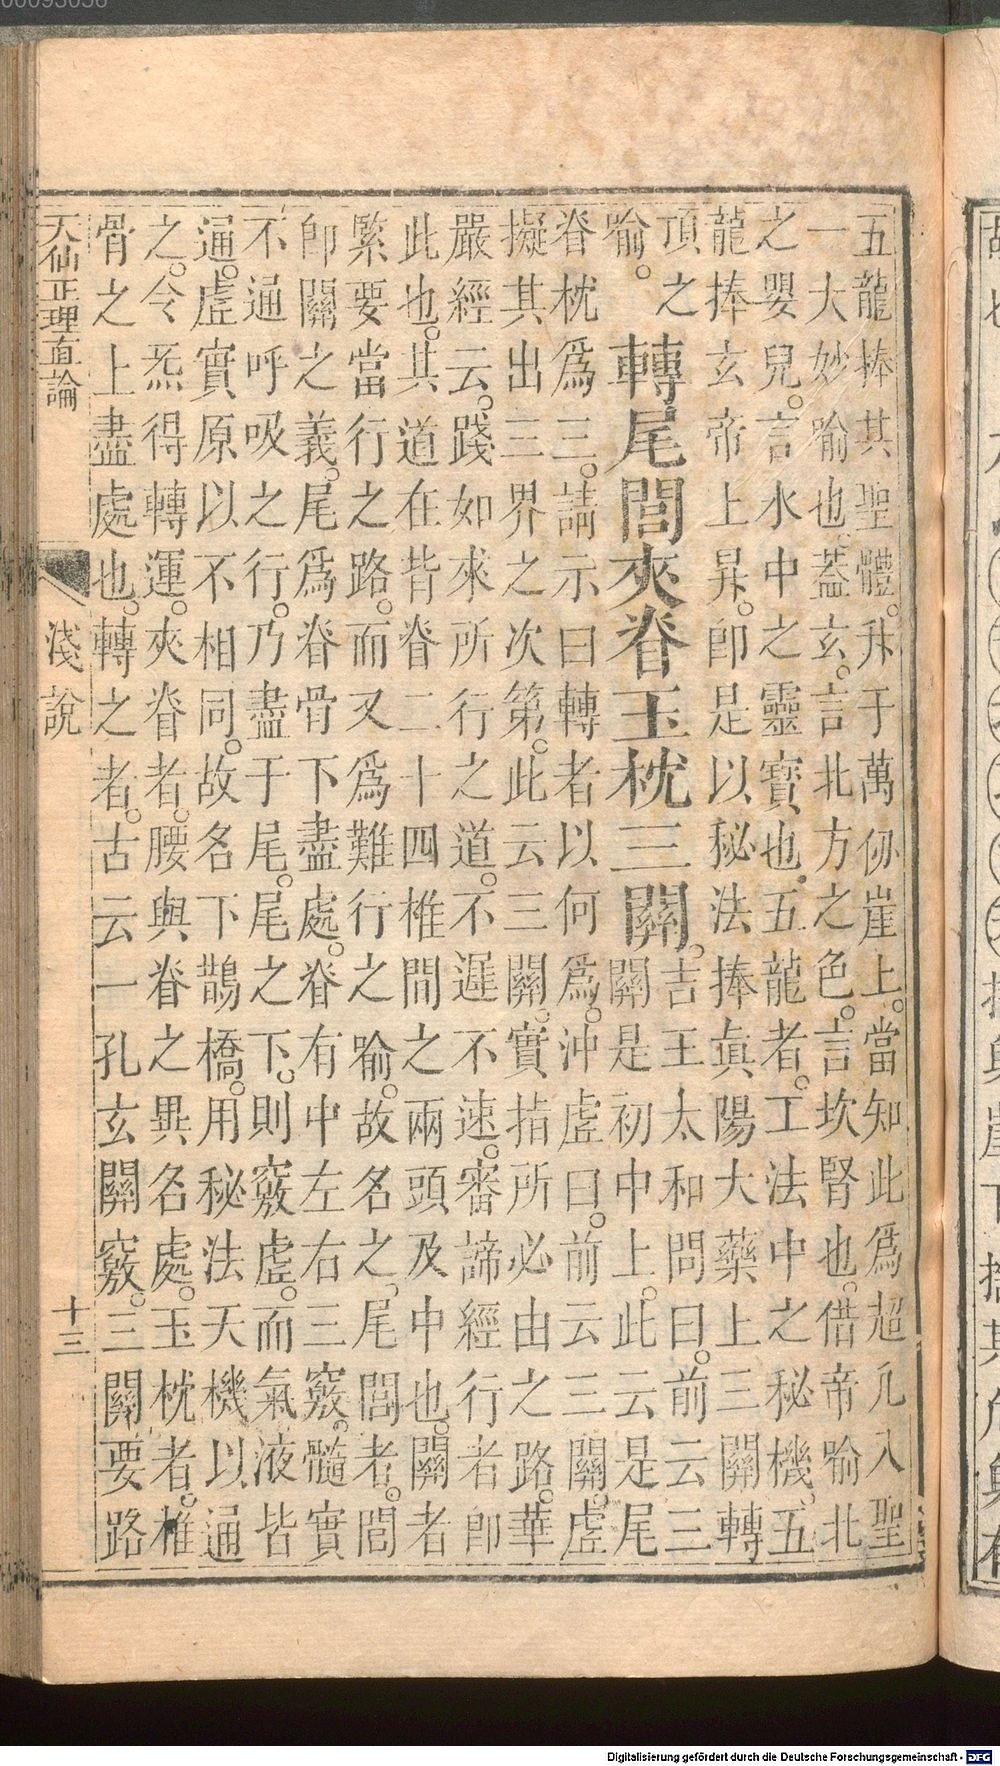 五龍捧其聖體。升于萬仞崖上。當知此爲超凡入聖
一大妙喻也。蓋玄。言北方之色。言坎腎也。借帝喻北
之嬰兒。言水中之靈寶也。五龍者。工法中之秘機。五
龍捧玄帝上昇。卽是以秘法捧眞陽大藥上三關轉
頂之
喻。
轉尾閭夾脊玉枕三關。
吉王太和問曰。前云三
關是初中上。此云是尾
脊枕爲三。請示曰轉者以何爲。沖虛曰。前云三關。虛
擬其出三界之次第。此云三關。實指所必由之路。華
嚴經云。踐如來所行之道。不遲不速。審諦經行者卽
此也。其道在背脊二十四椎間之兩頭及中也。關者
緊要當行之路。而又爲難行之喻。故名之。尾閭者。閭
卽關之義。尾爲脊骨下盡處。脊有中左右三竅。髓實
不通呼吸之行。乃盡于尾。尾之下。則竅虛。而氣液皆
通。虛實原以不相同。故名下鵲橋。用秘法天機以通
之。令炁得轉運。夾脊者。腰與脊之異名處。玉枕者。椎
骨之上盡處也。轉之者。古云一孔玄關竅。三關要路
天仙正理直論 淺說 十三
Digitalisierung gefördert durch die Deutsche Forschungsgemeinschaft - DFG